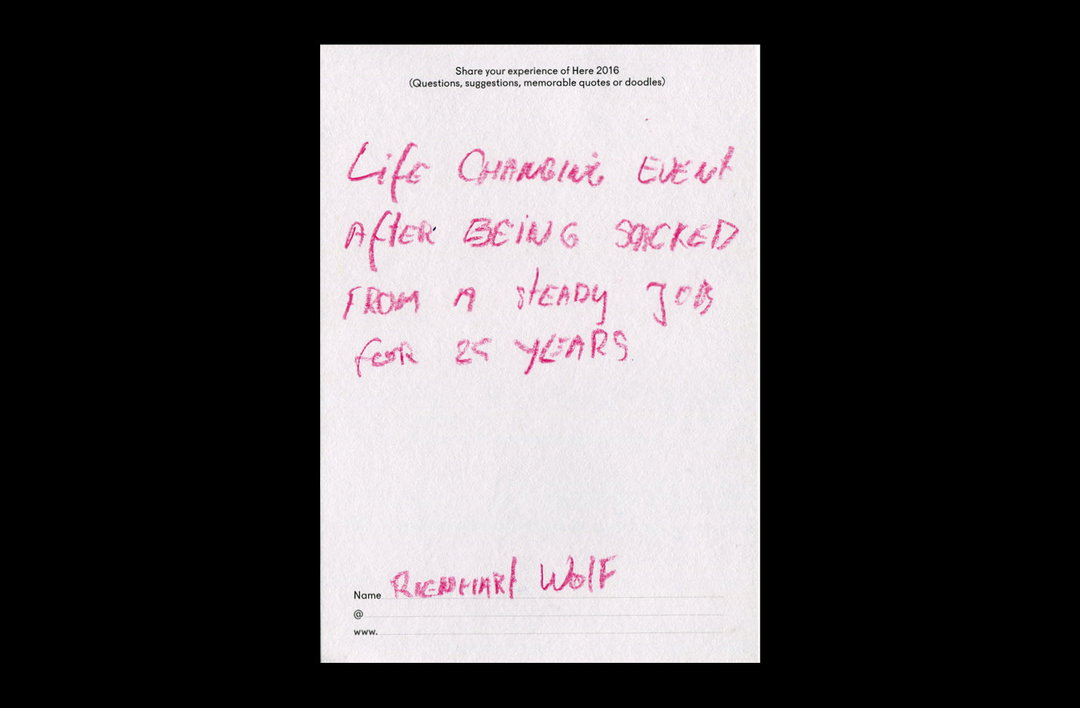 Share your experience of Here 2016
(Questions, suggestions, memorable quotes or doodles)
Life CHANGING EVENt
AftER BEING SACKED
FROM A stEADY JOB
foR 25 YEARS.
Name RIENHARt WolF
@
www.